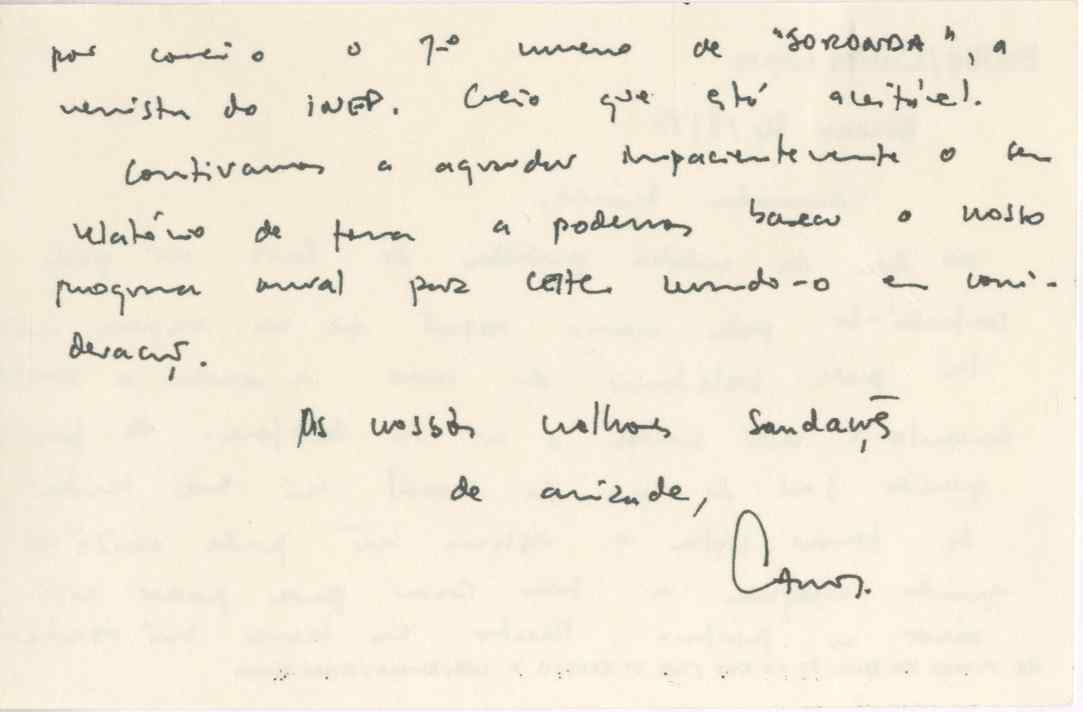 por correio o 1º número de "SORONDA", a
revista do INEP. Creio que está aceitável.
Continuamos a aguardar impacientemente o seu
relatório de forma a podermos basear o nosso
programa anual para tê-lo em consi-
deração.
As nossas melhores saudações
de amizade,
Carlos.